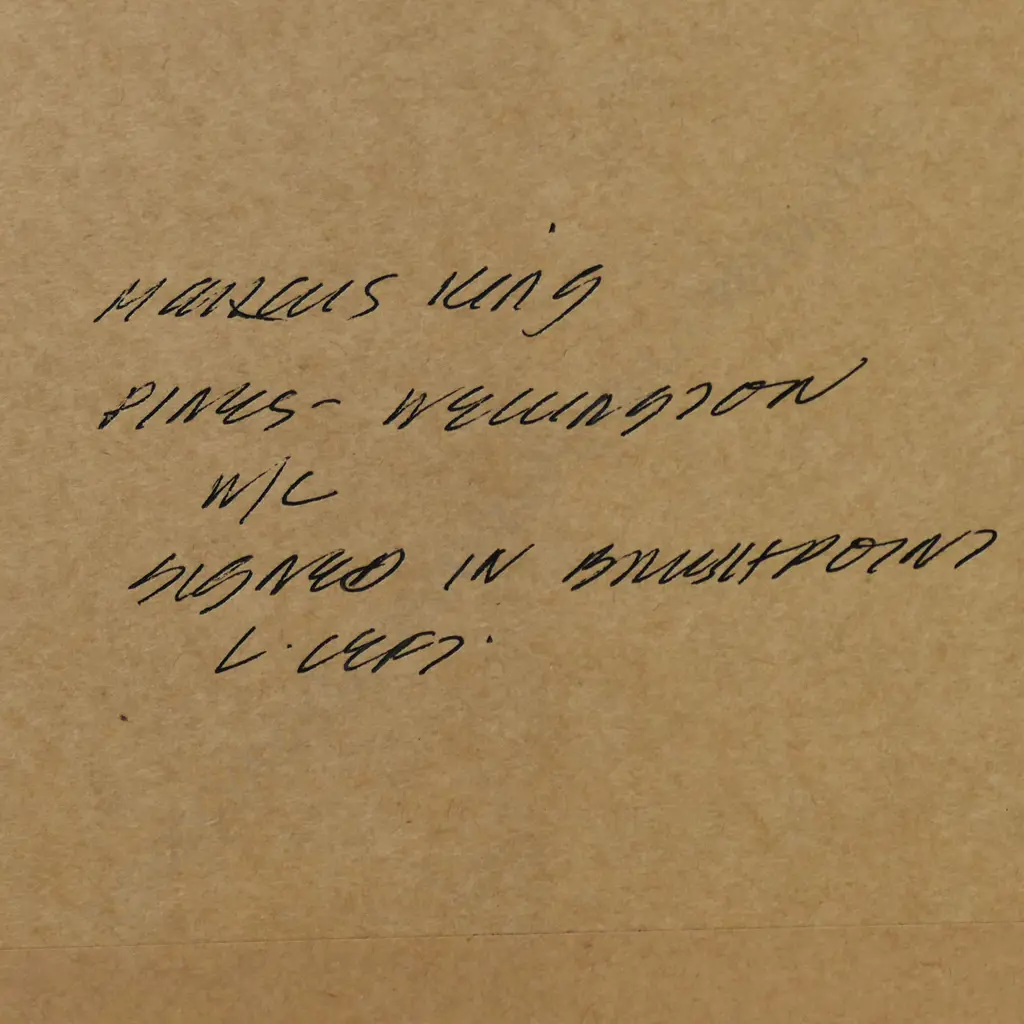 MARCUS KING
PINES - WELLINGTON
W/C
SIGNED IN BRUSHPOINT
L. LEFT.